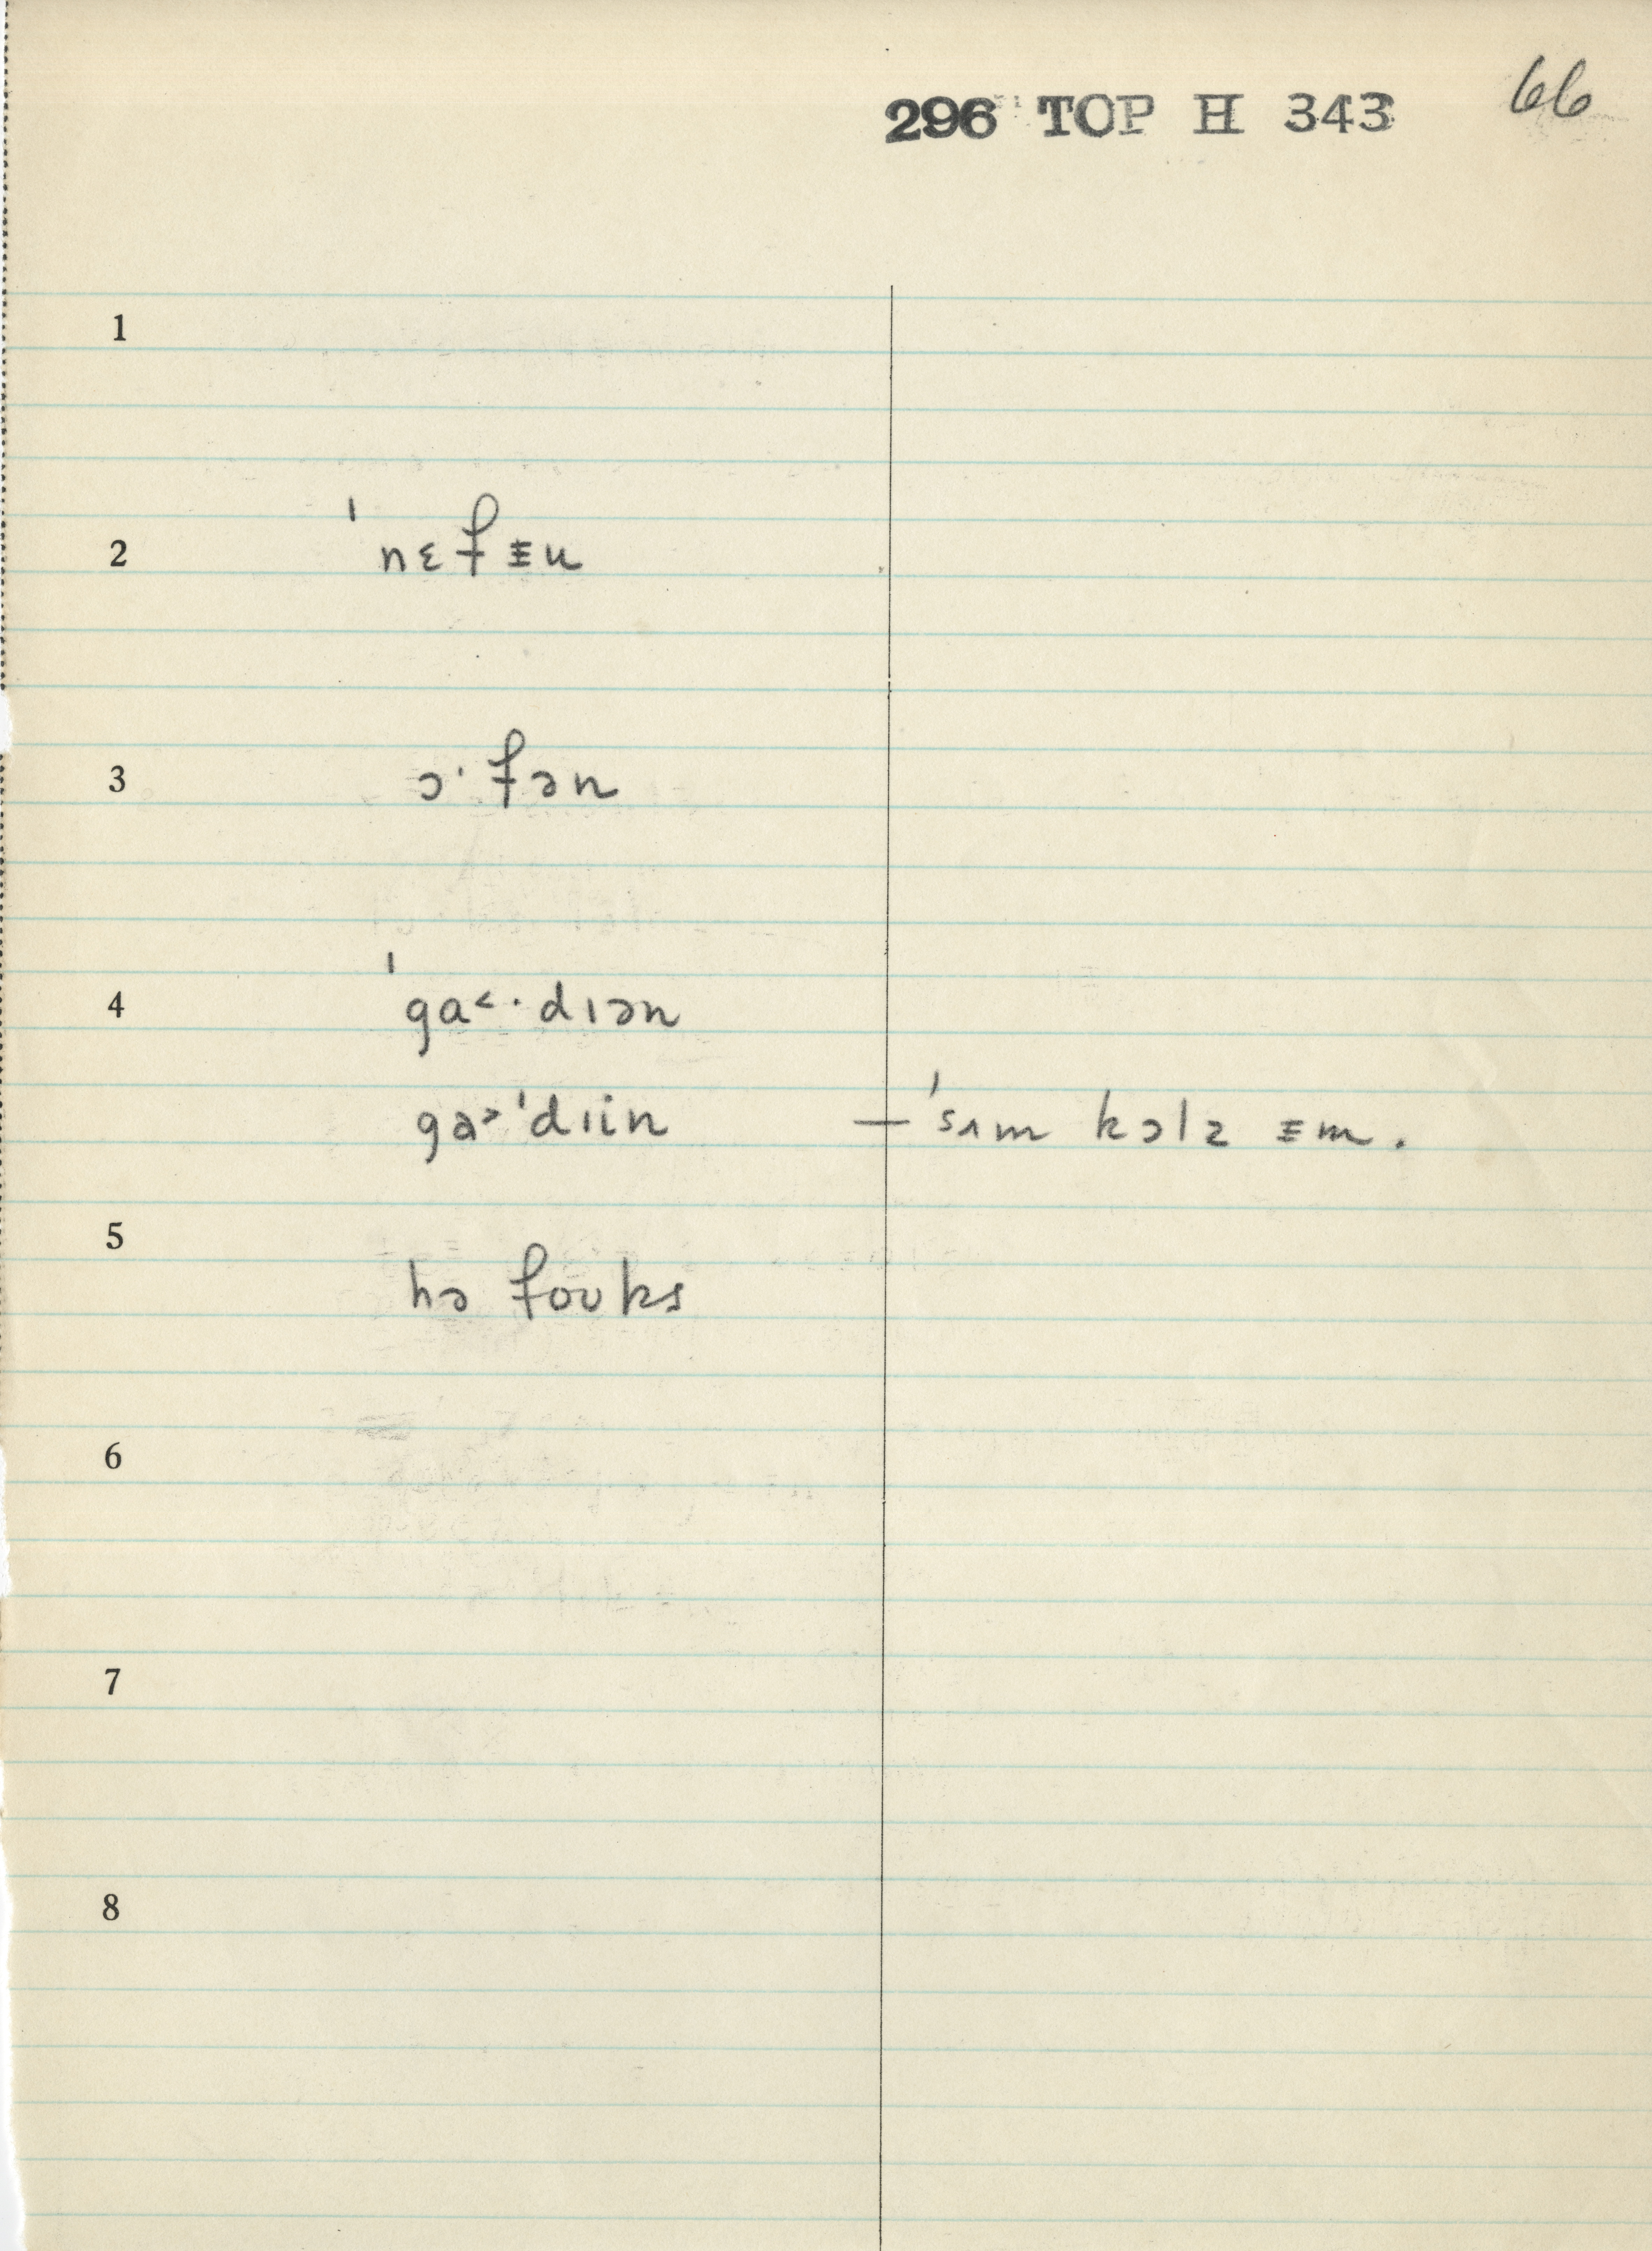 296 TOP H 343 66
1
2 ˈnɛfᵻu
3 ɔ·fən
4 ˈga˂·dɪən
gə˃ˈdɪin — ˈsʌm kɔlz ᵻm.
5 hə foʊks
6
7
8